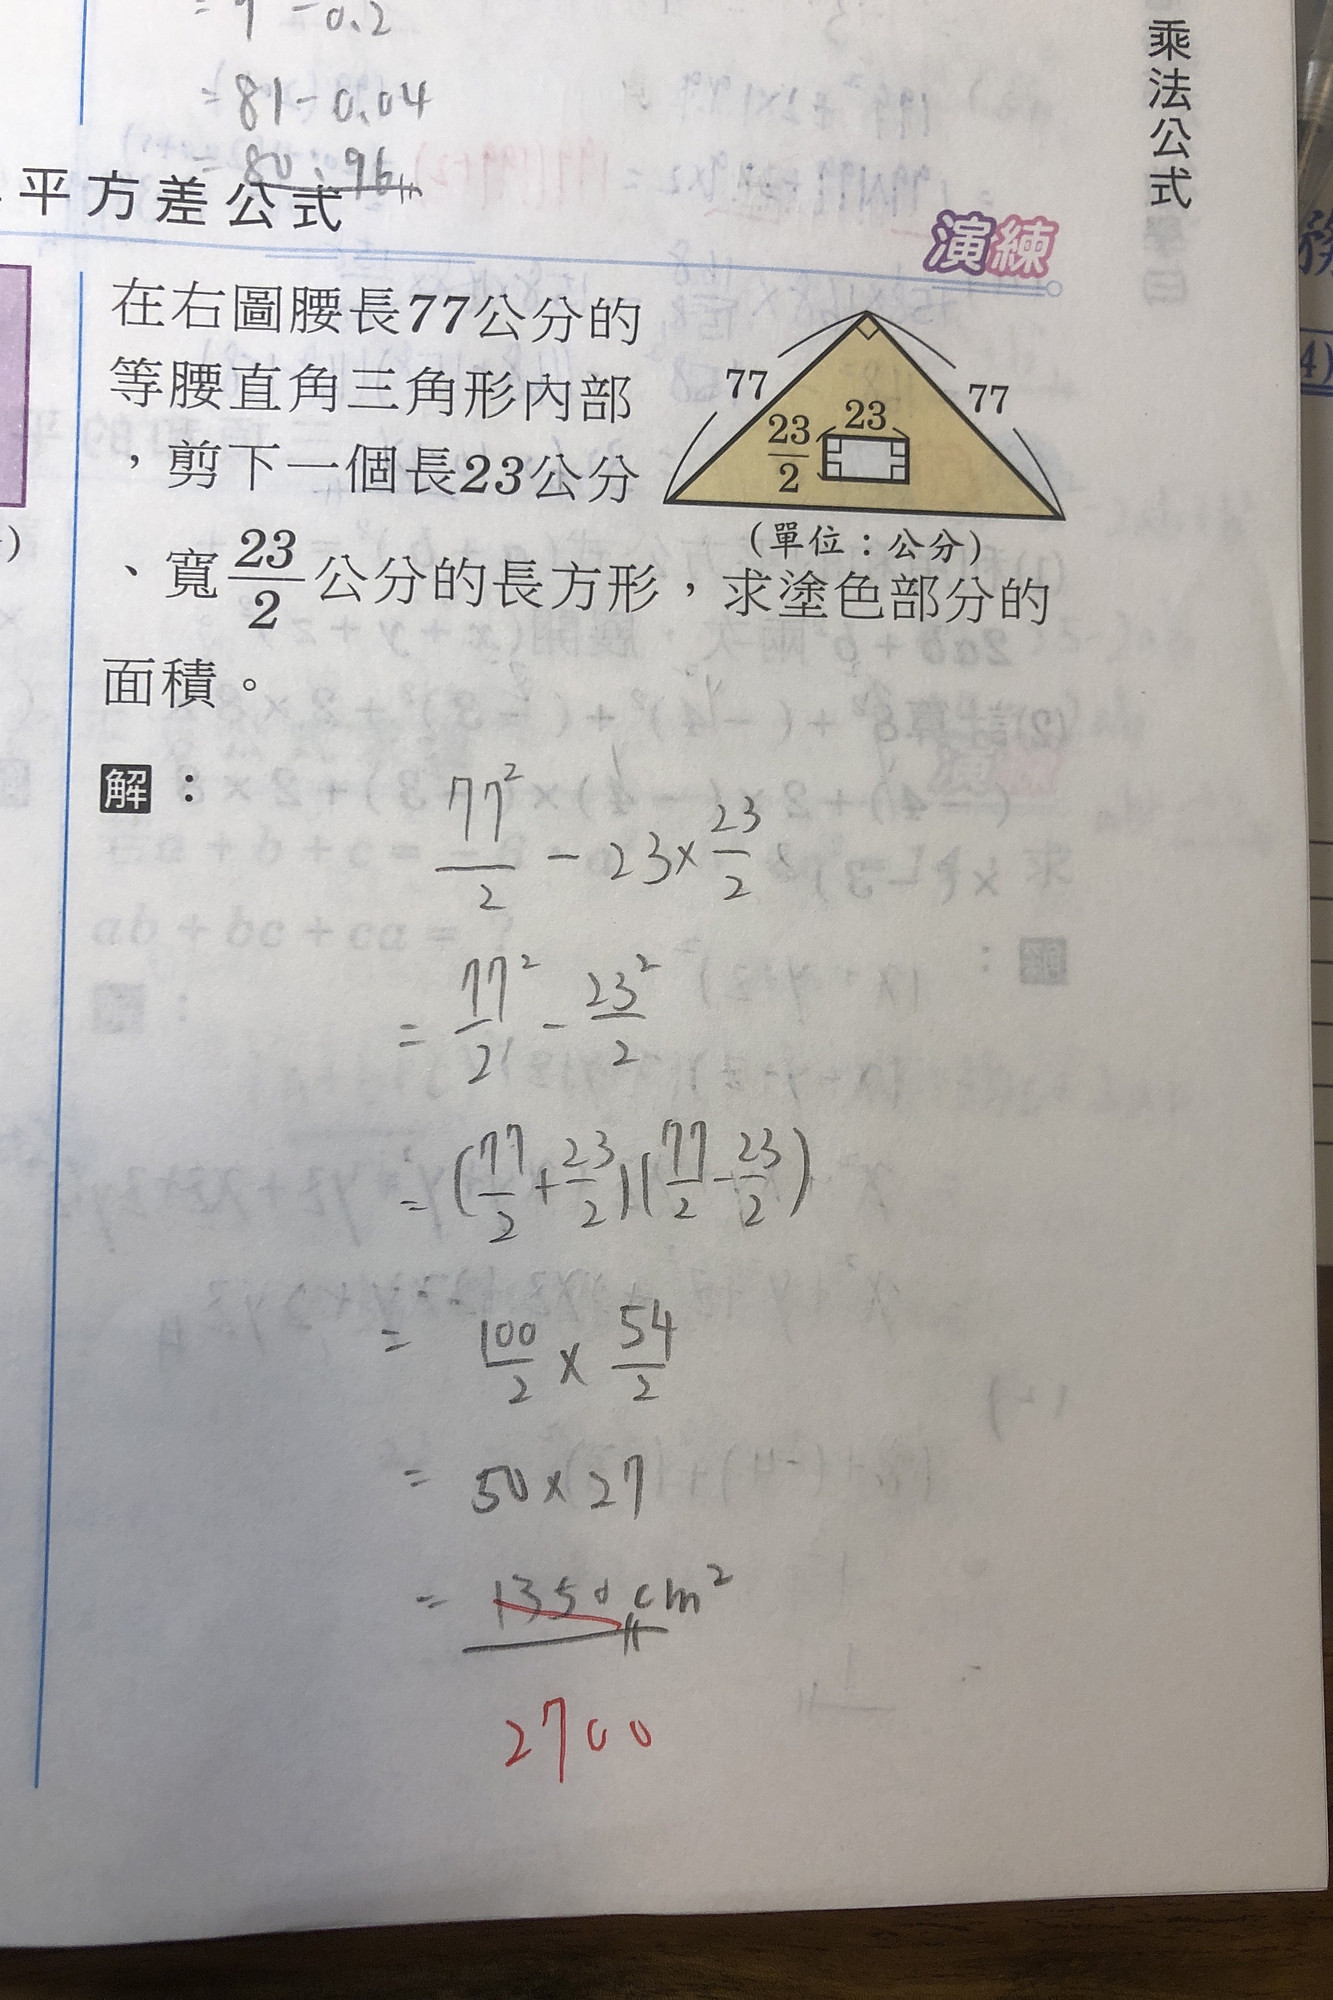 = 9 - 0.2
= 81 - 0.04
= 80.96
平方差公式
乘法公式
演練
在右圖腰長77公分的
等腰直角三角形內部
，剪下一個長23公分
、寬23/2公分的長方形，求塗色部分的
面積。
77
77
23
23/2
(單位：公分)
解：
77²/2 - 23×23/2
= 77²/2 - 23²/2
= (77/2+23/2)(77/2-23/2)
= 100/2 × 54/2
= 50×27
= 1350 cm²
2700
4)